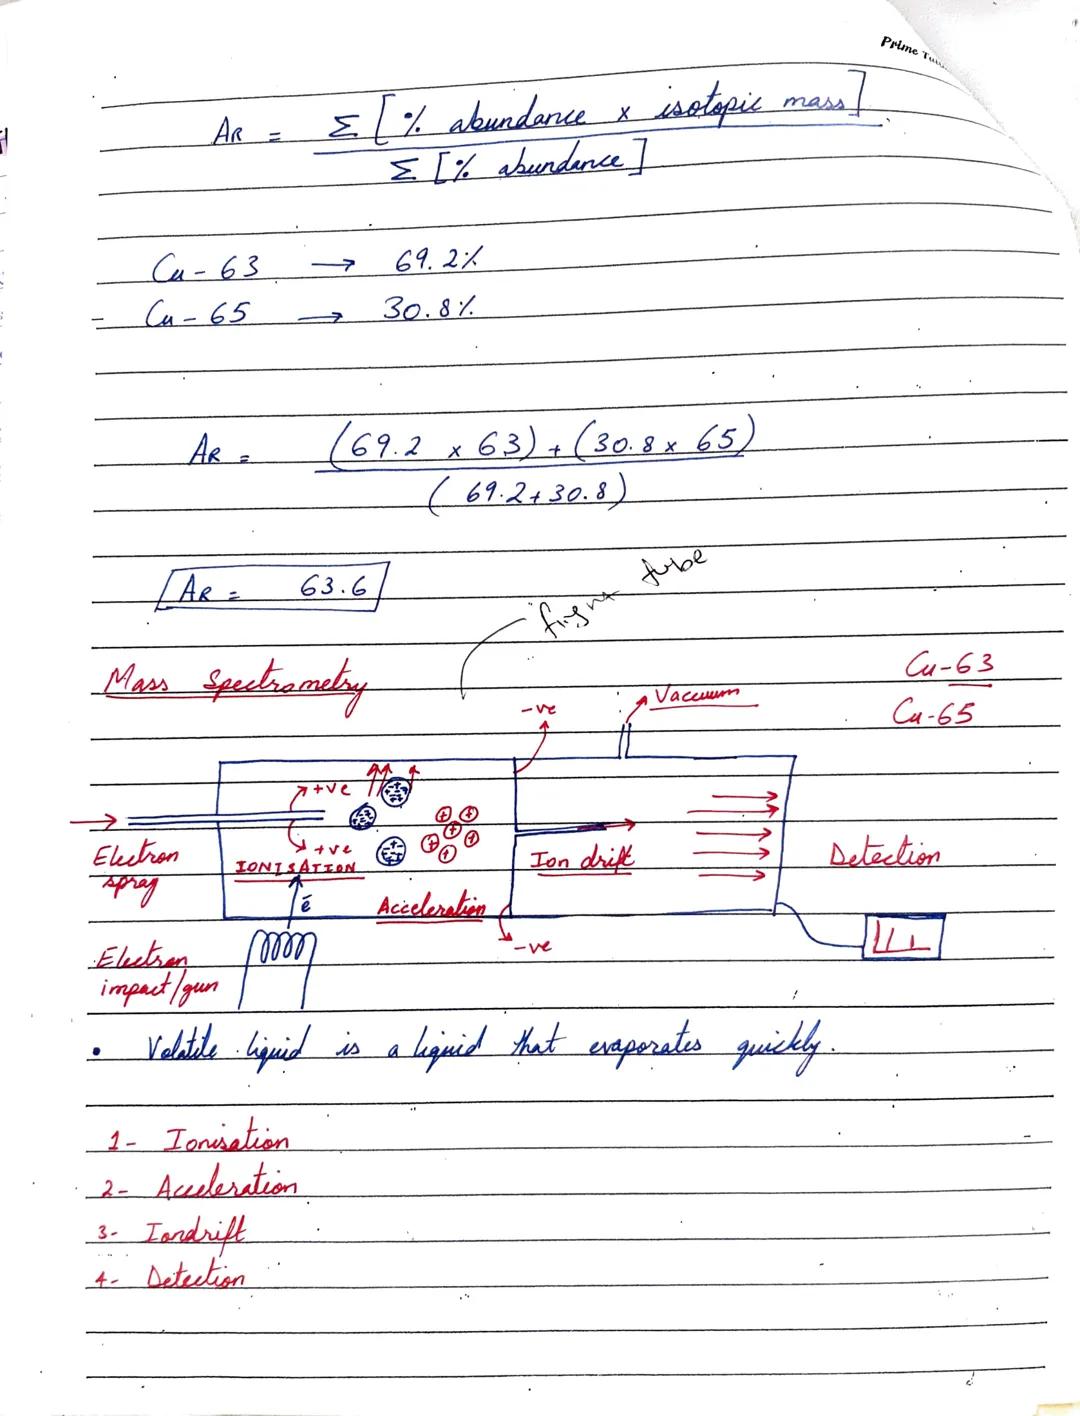 Prime
AR = Σ [% abundance x isotopic mass]
Σ [% abundance]
Cu-63 → 69.2%
- Cu-65 → 30.8%
AR = (69.2 x 63) + (30.8 x 65)
(69.2+30.8)
AR = 63.6
tube
Mass Spectrometry
Cu-63
Cu-65
-ve
Vacuum
+ve
+ve
Electron
spray
IONISATION
Ion drift
Detection
ē
Acceleration
-ve
Electron
impact/gun
• Volatile liquid is a liquid that evaporates quickly.
1- Ionisation
2- Acceleration
3- Iondrift
4- Detection